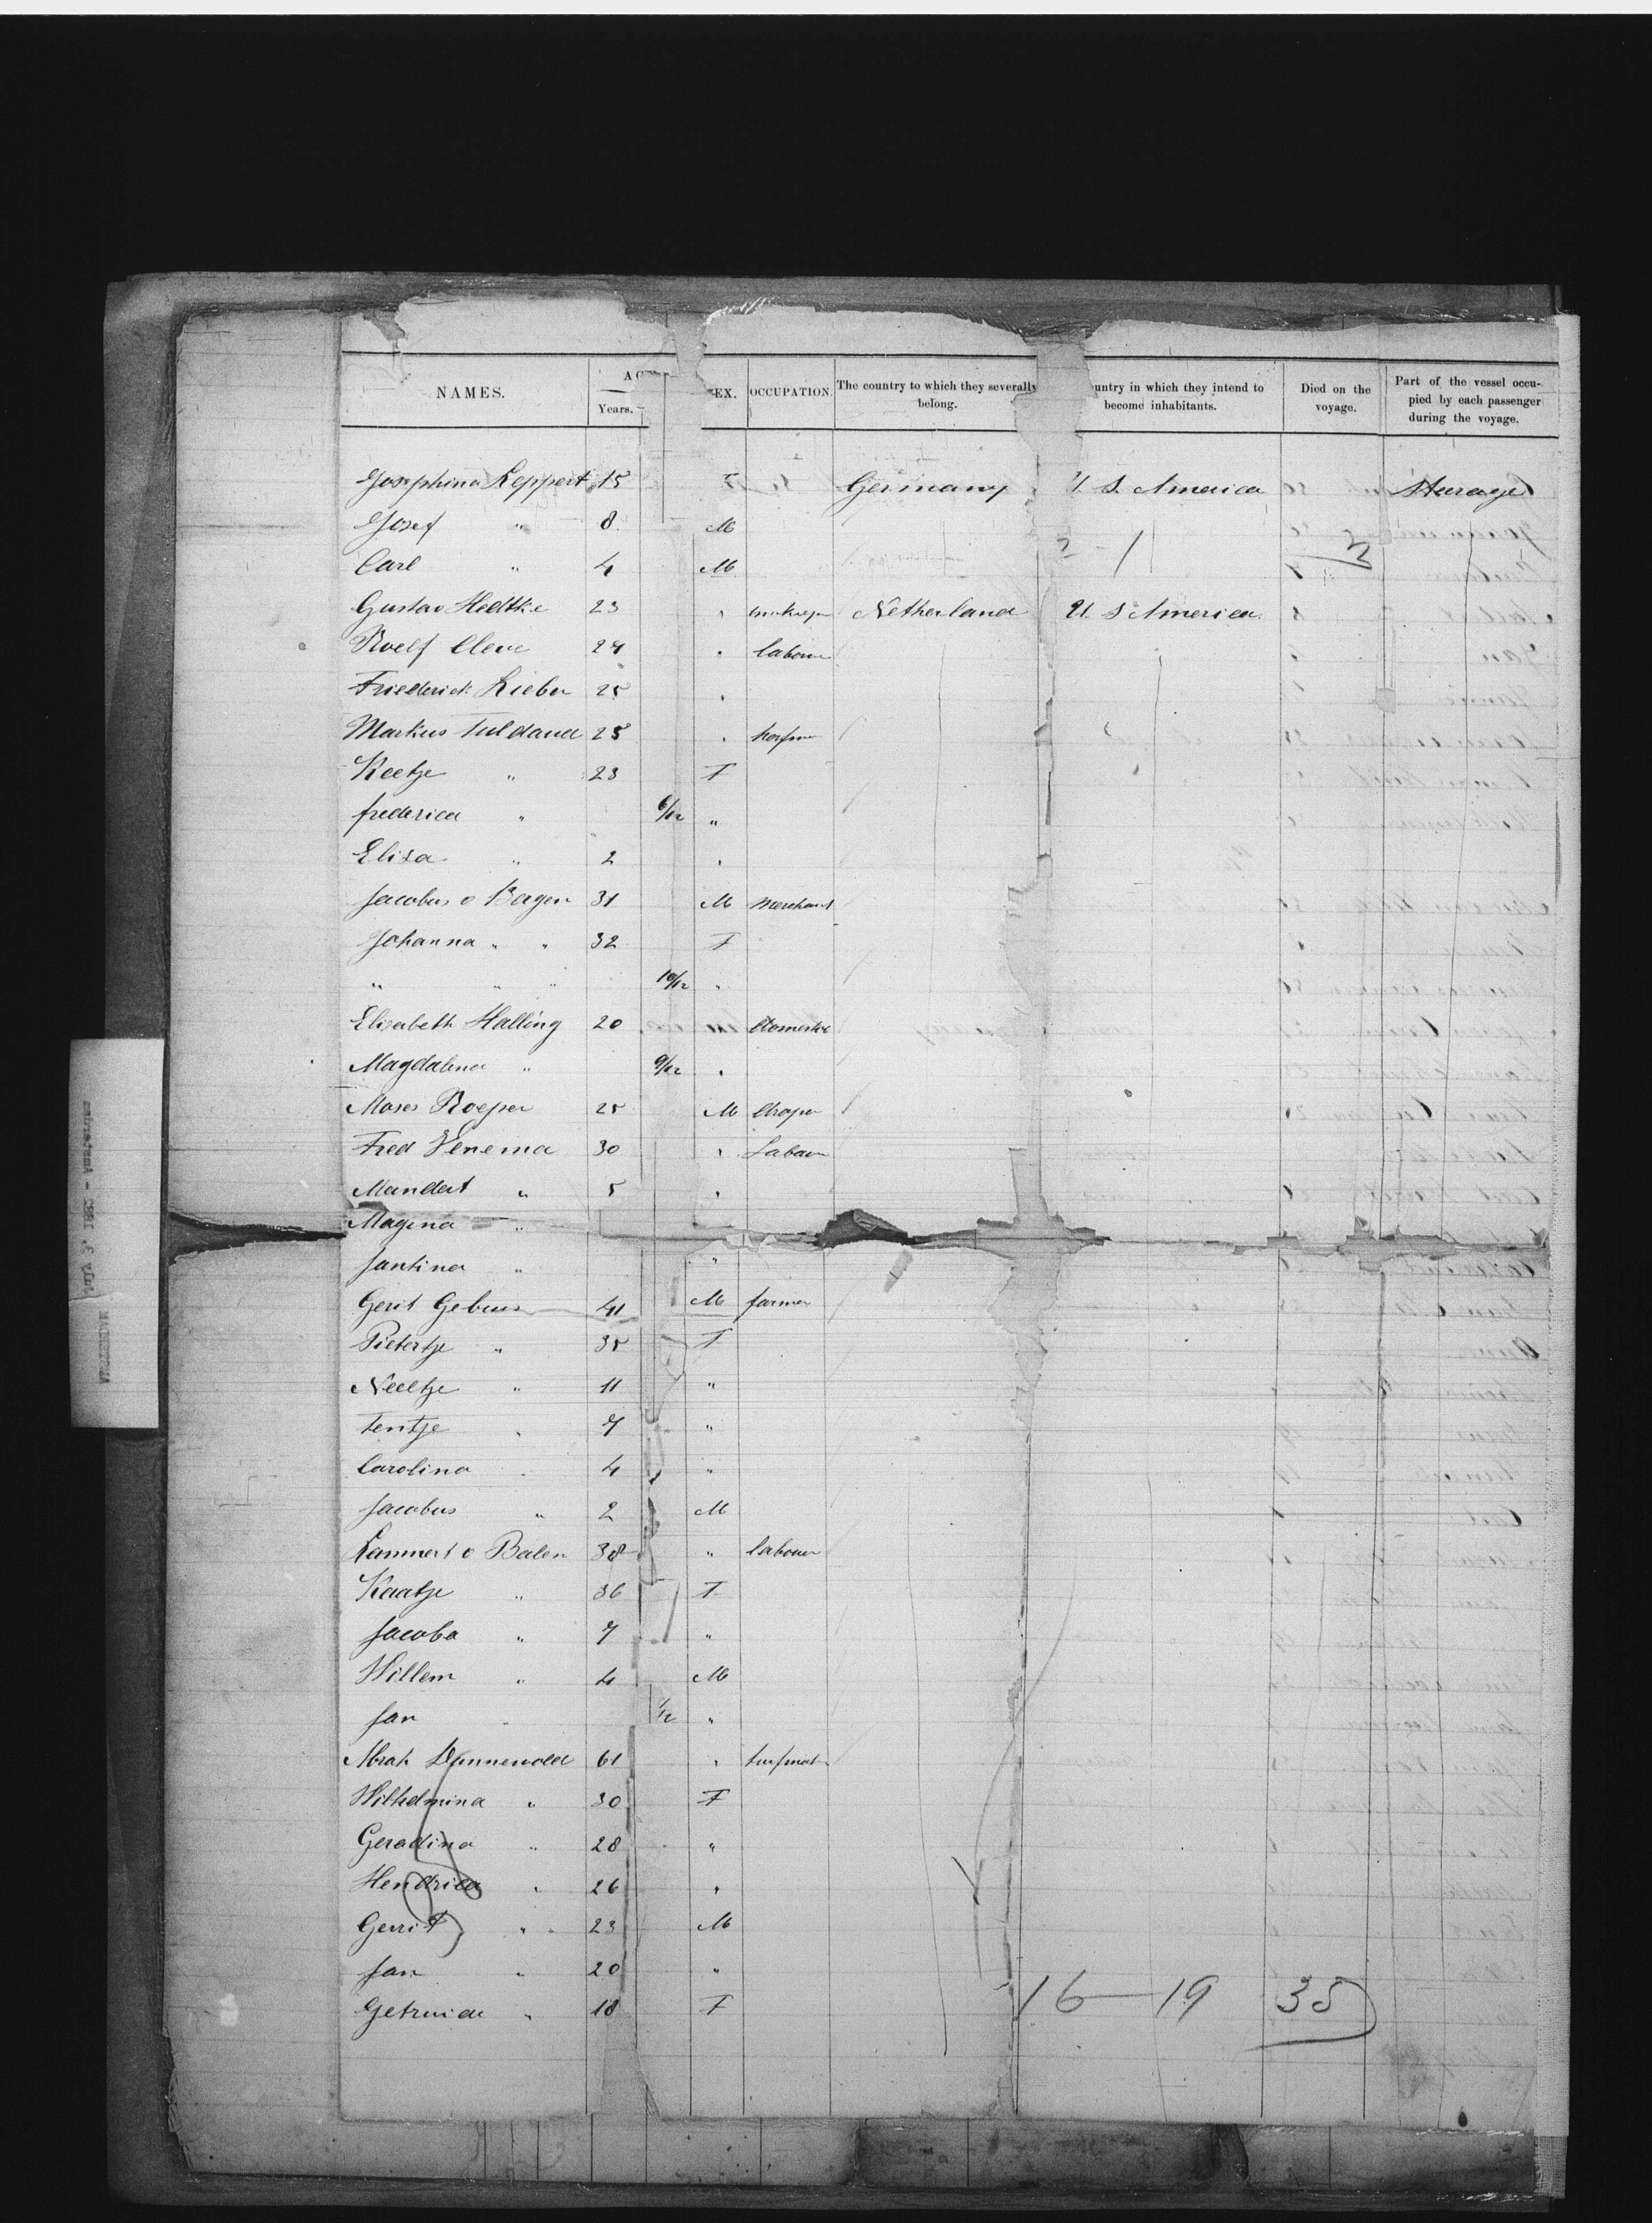 NAMES. Years. EX. OCCUPATION. The country to which they severally belong. untry in which they intend to become inhabitants. Died on the voyage. Part of the vessel occupied by each passenger during the voyage.
Josephina Reppert 15 F Germany U. S. America Steerage
Josef " 8 M
Carl " 4 M 2 - 1 3
Gustav Hedtke 23 " Netherland U. S America
Roelf Cleve 24 " labour
Friederick Lieber 25 "
Markus Tuldand 25 "
Keetje " 23 F
frederica " 6/12 "
Elisa " 2 "
Jacobus v Bergen 31 M Merchant
Johanna " " 32 F
" " " 10/12 "
Elisabeth Halling 20 domestic
Magdalena " 9/12 "
Moses Roeper 25 M
Fred Venema 30 " Labour
Mandert " 5 "
Magina "
Jantina " "
Gerit Gebuis 41 M farmer
Pietertje " 35 F
Neeltje " 11 "
Tentje " 7 "
Carolina " 4 "
Jacobus " 2 M
Lammert v Balen 38 " labour
Kaatje " 36 F
Jacoba " 7 "
Willem " 4 M
Jan " 1/12 "
Abrah Dannenold 61 "
Wilhelmina " 30 F
Geradina " 28 "
Hendrica " 26 "
Gerrit " 23 M
Jan " 20 "
Getruida " 18 F
16 - 19 35